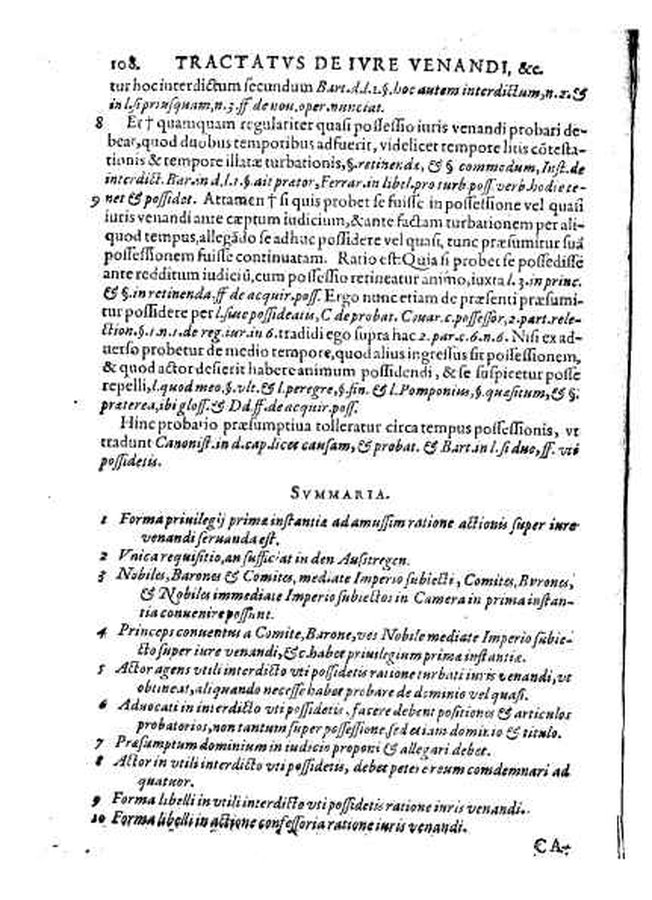 108. TRACTATVS DE IVRE VENANDI, &c.
tur hoc interdictum secundum Bart. d. l. 1. §. hoc autem interdictum, n. 2. &
in l. si priusquam, n. 3. ff de nou. oper. nunciat.
8 Et † quamquam regulariter quasi possessio iuris venandi probari de-
beat, quod duobus temporibus adfuerit, videlicet tempore litis cõtesta-
tionis & tempore illatæ turbationis, §. retinendæ, & § commodum, Inst. de
interdict. Bar. in d. l. 1. §. ait prætor, Ferrar. in libel. pro turb. poss. verb. hodie te-
9 net & possidet. Attamen † si quis probet se fuisse in possessione vel quasi
iuris venandi ante cæptum iudicium, & ante factam turbationem per ali-
quod tempus, allegãdo se adhuc possidere vel quasi, tunc præsumitur suã
possessionem fuisse continuatam. Ratio est: Quia si probet se possedisse
ante redditum iudiciũ, cum possessio retineatur animo, iuxta l. 3. in princ.
& §. in retinenda. ff de acquir. poss. Ergo nunc etiam de præsenti præsumi-
tur possidere per l. siue possideatis, C de probat. Couar. c. possessor, 2. part. rele-
ction. §. 1 n. 1. de reg. iur. in 6. tradidi ego supra hac 2. par. c. 6. n. 6. Nisi ex ad-
uerso probetur de medio tempore, quod alius ingressus sit possessionem,
& quod actor desierit habere animum possidendi, & se suspicetur posse
repelli, l. quod meo, §. vlt. & l. peregre, §. fin. & l. Pomponius, §. quæsitum, & §.
præterea, ibi gloss. & Dd. ff. de acquir. poss.
Hinc probatio præsumptiua tolleratur circa tempus possessionis, vt
tradunt Canonist. in d. cap. licet causam, & probat. & Bart. in l. si duo, ff. vti
possidetis.
SVMMARIA.
1 Forma priuilegij primæ instantiæ ad amussim ratione actionis super iure
venandi seruanda est.
2 Vnica requisitio, an sufficiat in den Austregen.
3 Nobiles, Barones & Comites, mediate Imperio subiecti, Comites, Barones,
& Nobiles immediate Imperio subiectos in Camera in prima instan-
tia conuenire possunt.
4 Princeps conuentus a Comite, Barone, ves Nobile mediate Imperio subie-
cto super iure venandi, &c. habet priuilegium primæ instantiæ.
5 Actor agens vtili interdicto vti possidetis ratione turbati iuris venandi, vt
obtineat, aliquando necesse habet probare de dominio vel quasi.
6 Aduocati in interdicto vti possidetis, facere debent positiones & articulos
probatorios, non tantum super possessione, sed etiam dominio & titulo.
7 Præsumptum dominium in iudicio proponi & allegari debet.
8 Actor in vtili interdicto vti possidetis, debet petere reum comdemnari ad
quatuor.
9 Forma libelli in vtili interdicto vti possidetis ratione iuris venandi.
10 Forma libelli in actione confessoria ratione iuris venandi.
CA-